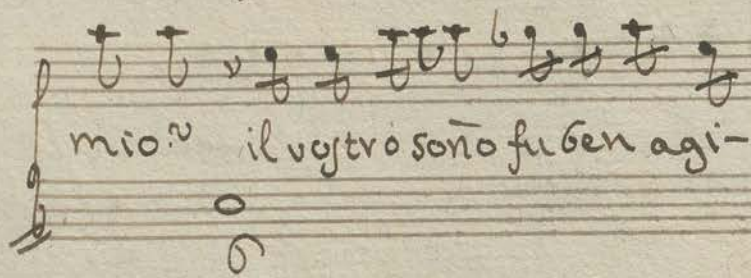 mio? il vostro som̄o fu ben agi-
6